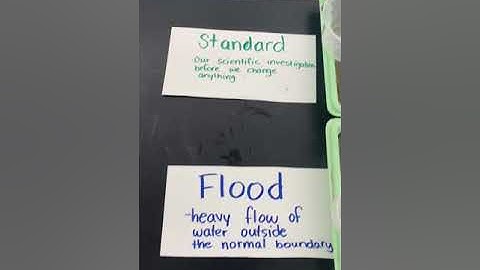 Standard
Our scientific investigation
before we change
anything
Flood
-heavy flow of
water outside
the normal boundary